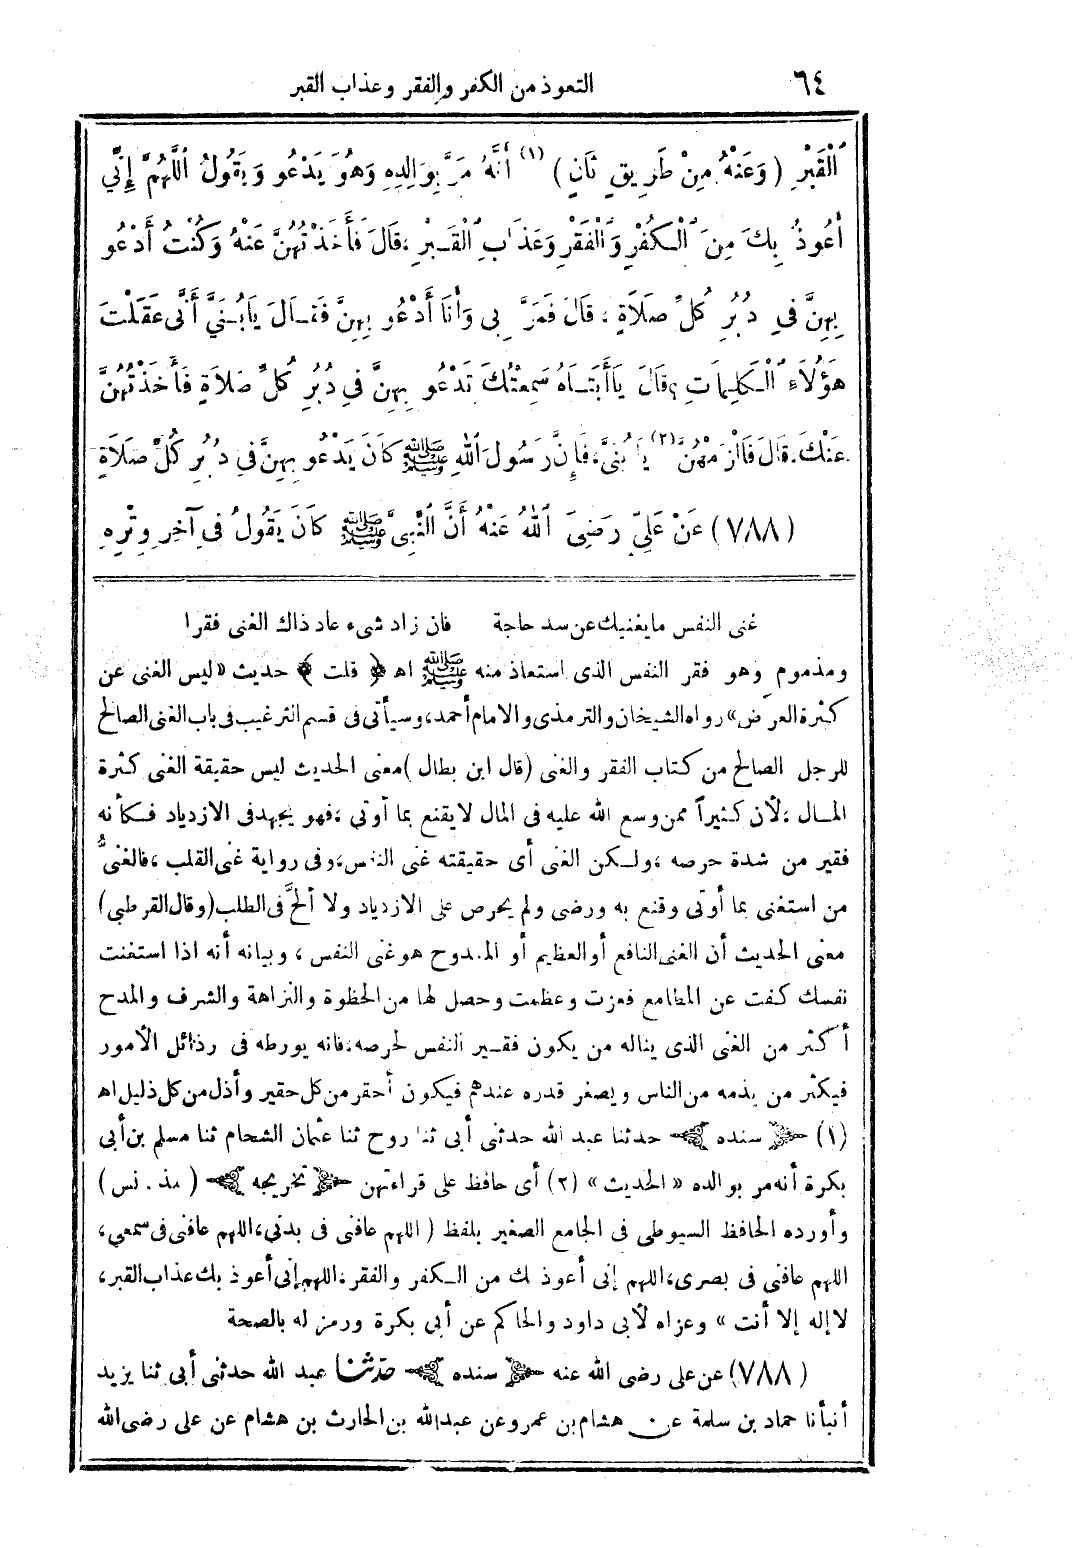 ٦٤ التعوذ من الكفر والفقر وعذاب القبر
ٱلْقَبْرِ (وَعَنْهُ مِنْ طَرِيقٍ ثَانٍ) (١) أَنَّهُ مَرَّ بِوَالِدِهِ وَهُوَ يَدْعُو وَيَقُولُ اللَّهُمَّ إِنِّي
أَعُوذُ بِكَ مِنَ ٱلْكُفْرِ وَٱلْفَقْرِ وَعَذَابِ ٱلْقَبْرِ، قَالَ فَأَخَذْتُهُنَّ عَنْهُ وَكُنْتُ أَدْعُو
بِهِنَّ فِي دُبُرِ كُلِّ صَلَاةٍ، قَالَ فَمَرَّ بِي وَأَنَا أَدْعُو بِهِنَّ فَقَالَ يَابُنَيَّ أَنَّى عَقَلْتَ
هَؤُلَاءِ ٱلْكَلِمَاتِ؟ قَالَ يَاأَبَتَاهُ سَمِعْتُكَ تَدْعُو بِهِنَّ فِي دُبُرِ كُلِّ صَلَاةٍ فَأَخَذْتُهُنَّ
عَنْكَ. قَالَ فَالْزَمْهُنَّ (٢) يَا بُنَيَّ، فَإِنَّ رَسُولَ ٱللهِ ﷺ كَانَ يَدْعُو بِهِنَّ فِي دُبُرِ كُلِّ صَلَاةٍ
(٧٨٨) عَنْ عَلِيٍّ رَضِيَ ٱللهُ عَنْهُ أَنَّ ٱلنَّبِيَّ ﷺ كَانَ يَقُولُ فِي آخِرِ وِتْرِهِ
غنى النفس مايغنيك عن سد حاجة فان زاد شىء عاد ذاك الغنى فقرا
ومذموم وهو فقر النفس الذى استعاذ منه ﷺ اه ﴿ قلت ﴾ حديث «ليس الغنى عن
كثرة العرَض» رواه الشيخان والترمذى والامام أحمد، وسيأتى فى قسم الترغيب فى باب الغنى الصالح
للرجل الصالح من كتاب الفقر والغنى (قال ابن بطال) معنى الحديث ليس حقيقة الغنى كثرة
المال، لأن كثيراً ممن وسع الله عليه فى المال لايقنع بما أوتي، فهو يجهد فى الازدياد فكأنه
فقير من شدة حرصه، ولكن الغنى أى حقيقته غنى النفس، وفى رواية غنى القلب، فالغنىُّ
من استغنى بما أوتى وقنع به ورضى ولم يحرص على الازدياد ولا ألحَّ فى الطلب (وقال القرطبى)
معنى الحديث أن الغنى النافع أو العظيم أو الممدوح هو غنى النفس، وبيانه أنه اذا استغنت
نفسك كفت عن المطامع فعزت وعظمت وحصل لها من الحظوة والنزاهة والشرف والمدح
أكثر من الغنى الذى يناله من يكون فقير النفس لحرصه، فانه يورطه فى رذائل الأمور
فيكثر من يذمه من الناس ويصغر قدره عندهم فيكون أحقر من كل حقير وأذل من كل ذليل اه
(١) ﴿ سنده ﴾ حدثنا عبد الله حدثنى أبى ثنا روح ثنا عثمان الشحام ثنا مسلم بن أبى
بكرة أنه مر بوالده «الحديث» (٢) أى حافظ على قراءتهن ﴿ تخريجه ﴾ (مذ. نس)
وأورده الحافظ السيوطى فى الجامع الصغير بلفظ (اللهم عافنى فى بدنى، اللهم عافنى فى سمعي،
اللهم عافنى فى بصرى، اللهم إنى أعوذ بك من الكفر والفقر، اللهم إنى أعوذ بك عذاب القبر،
لاإله إلا أنت» وعزاه لأبى داود والحاكم عن أبى بكرة ورمز له بالصحة
(٧٨٨) عن على رضى الله عنه ﴿ سنده ﴾ حدّثنا عبد الله حدثنى أبى ثنا يزيد
أنبأنا حماد بن سلمة عن هشام بن عمرو عن عبد الله بن الحارث بن هشام عن على رضى الله